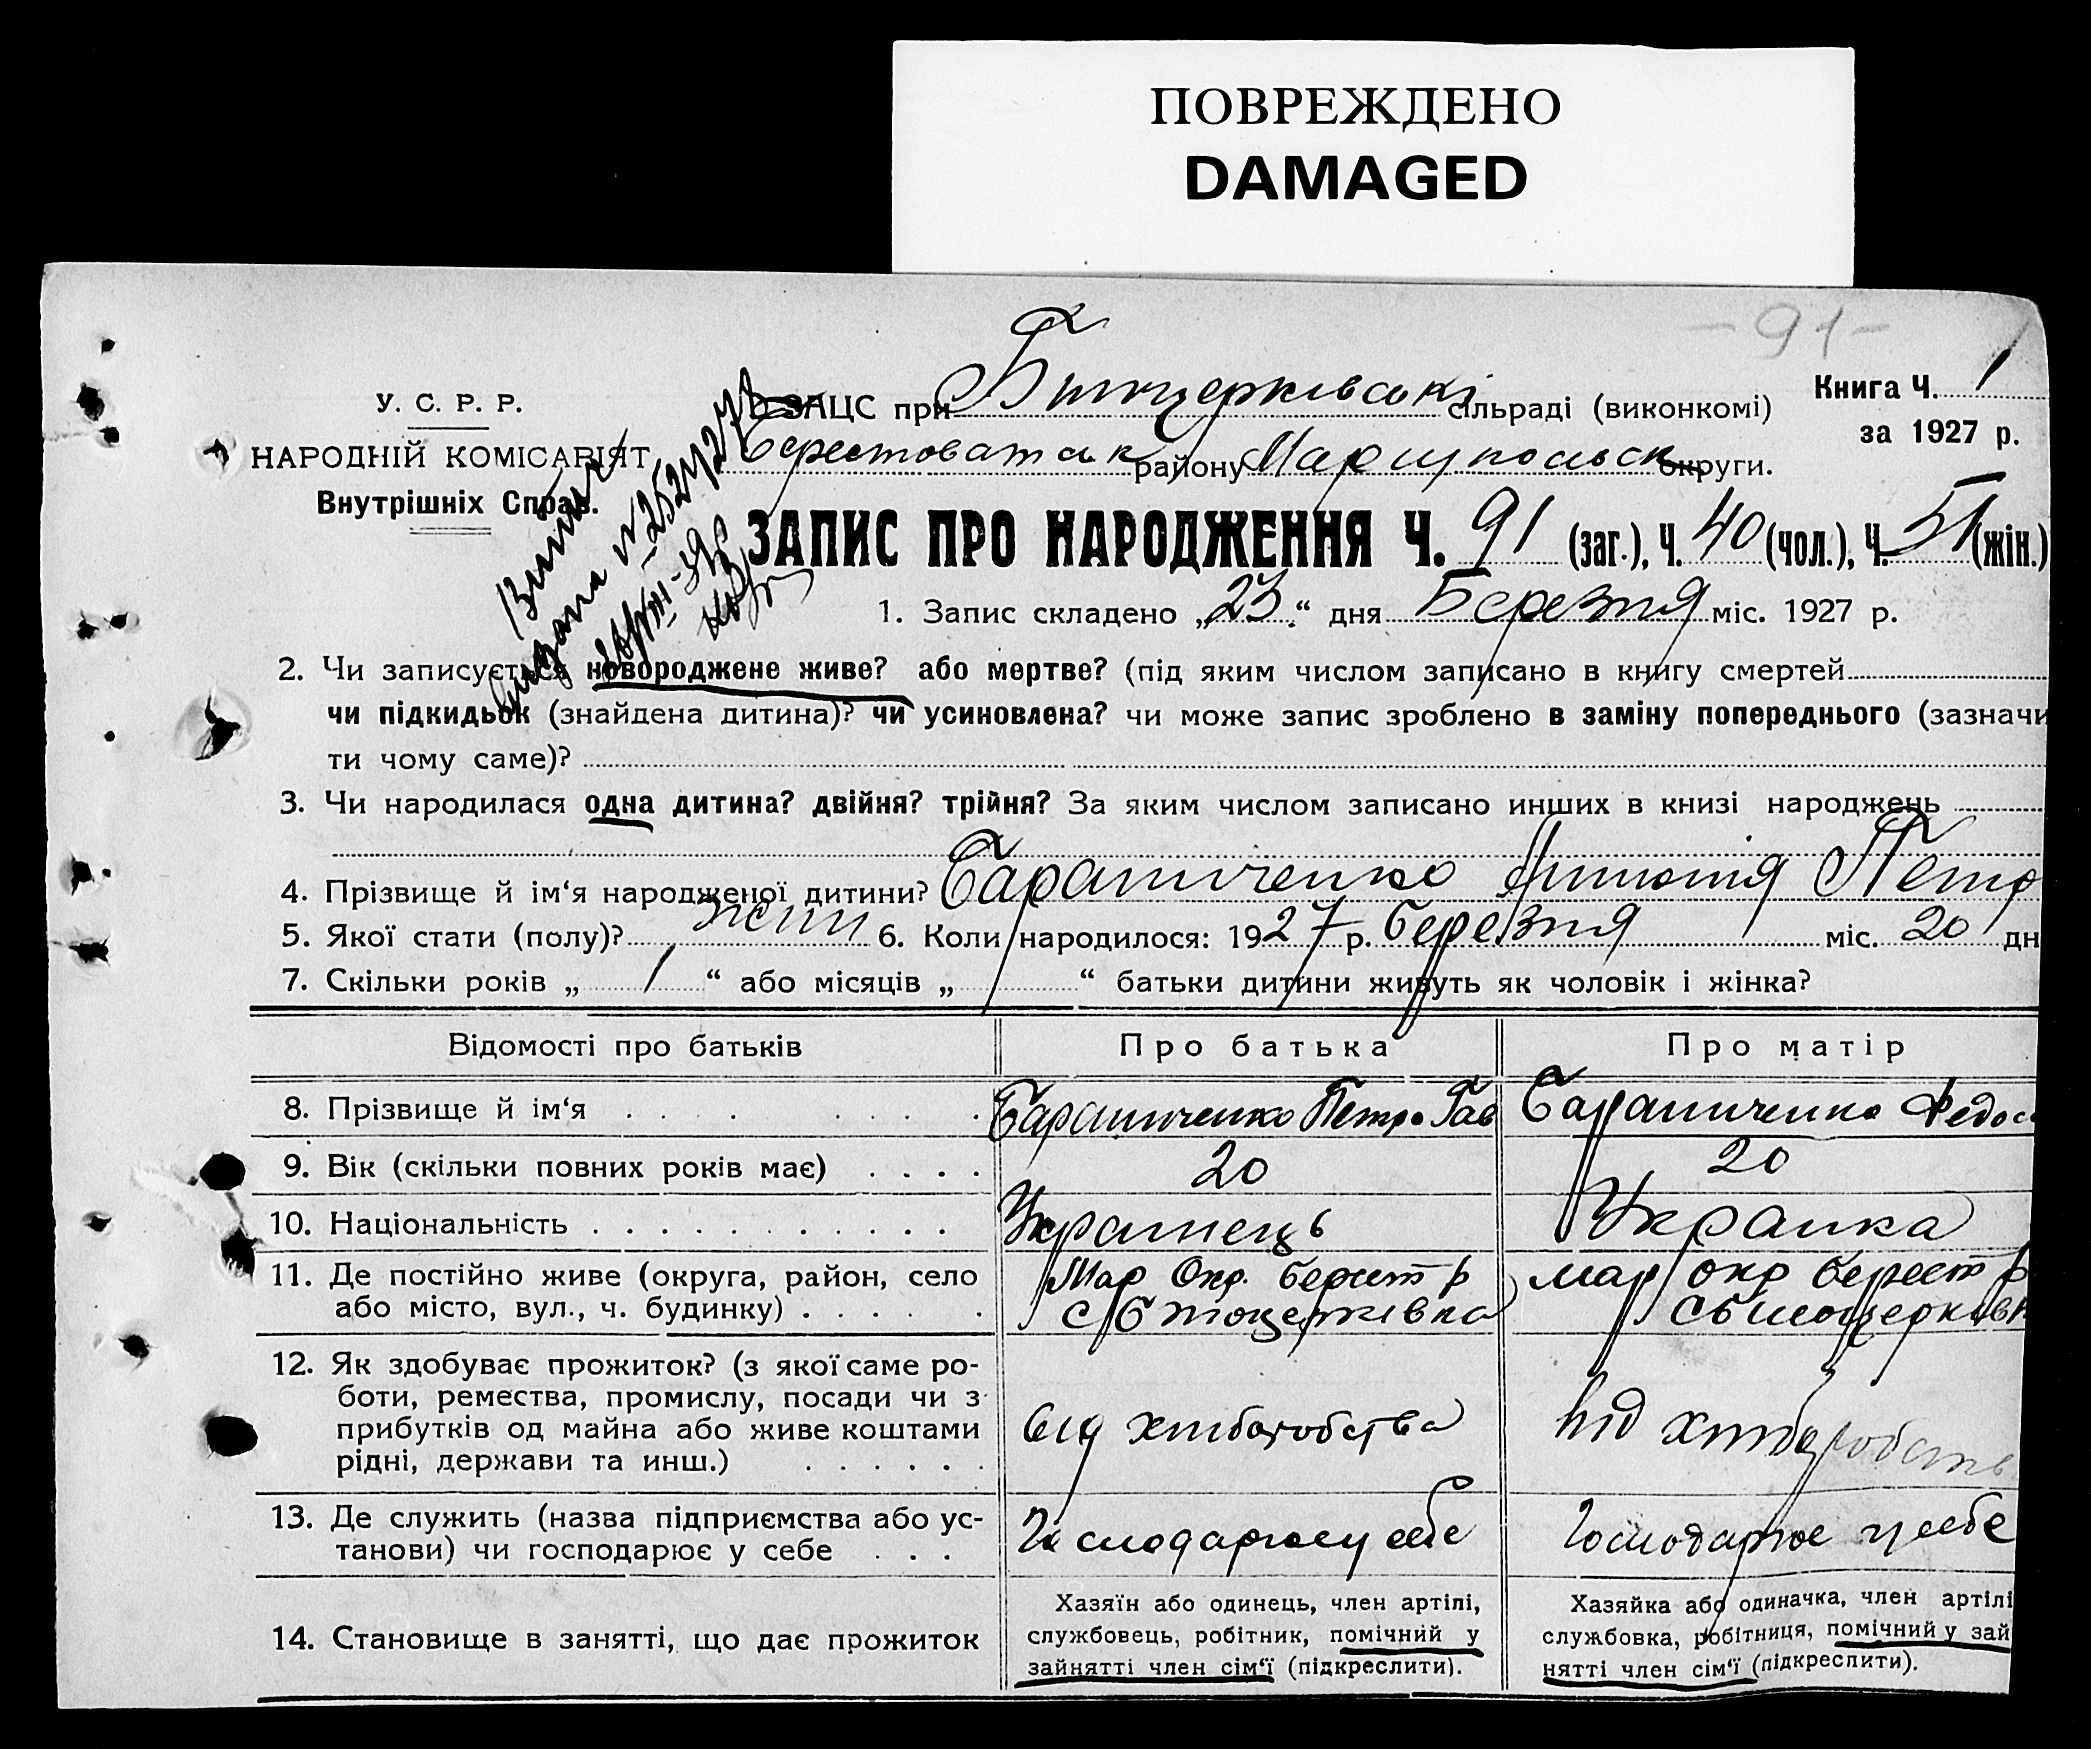 ПОВРЕЖДЕНО
DAMAGED
- 91 -
У. С. Р. Р.
НАРОДНІЙ КОМІСАРІЯТ
Внутрішніх Справ.
ЗАЦС при сільраді (виконкомі)
Книга Ч. 1
за 1927 р.
району Маріупольськ округи.
ЗАПИС ПРО НАРОДЖЕННЯ Ч. 91 (заг.), Ч. 40 (чол.), Ч. 51 (жін.)
1. Запис складено „23“ дня Березня міс. 1927 р.
2. Чи записується новороджене живе? або мертве? (під яким числом записано в книгу смертей
чи підкидьок (знайдена дитина)? чи усиновлена? чи може запис зроблено в заміну попереднього (зазначи
ти чому саме)?
3. Чи народилася одна дитина? двійня? трійня? За яким числом записано инших в книзі народжень
4. Прізвище й ім‘я народженої дитини? Петр
5. Якої стати (полу)? жін 6. Коли народилося: 1927 р. березня міс. 20 дн
7. Скільки років „ 1 “ або місяців „ “ батьки дитини живуть як чоловік і жінка?
Відомості про батьків Про батька Про матір
8. Прізвище й ім‘я Петро Гав Федос
9. Вік (скільки повних років має) 20 20
10. Національність Українець Українка
11. Де постійно живе (округа, район, село
або місто, вул., ч. будинку)
Мар Окр. берест р
с Білоцерківка
мар окр берест р
с білоцерківк
12. Як здобуває прожиток? (з якої саме ро-
боти, ремества, промислу, посади чи з
прибутків од майна або живе коштами
рідні, держави та инш.)
від хліборобства
від хліборобств
13. Де служить (назва підприємства або ус-
танови) чи господарює у себе
Господарює у себе
Господарює у себе
14. Становище в занятті, що дає прожиток
Хазяїн або одинець, член артілі,
службовець, робітник, помічний у
зайнятті член сім‘ї (підкреслити).
Хазяйка або одиначка, член артілі
службовка, робітниця, помічний у зай
нятті член сім‘ї (підкреслити).